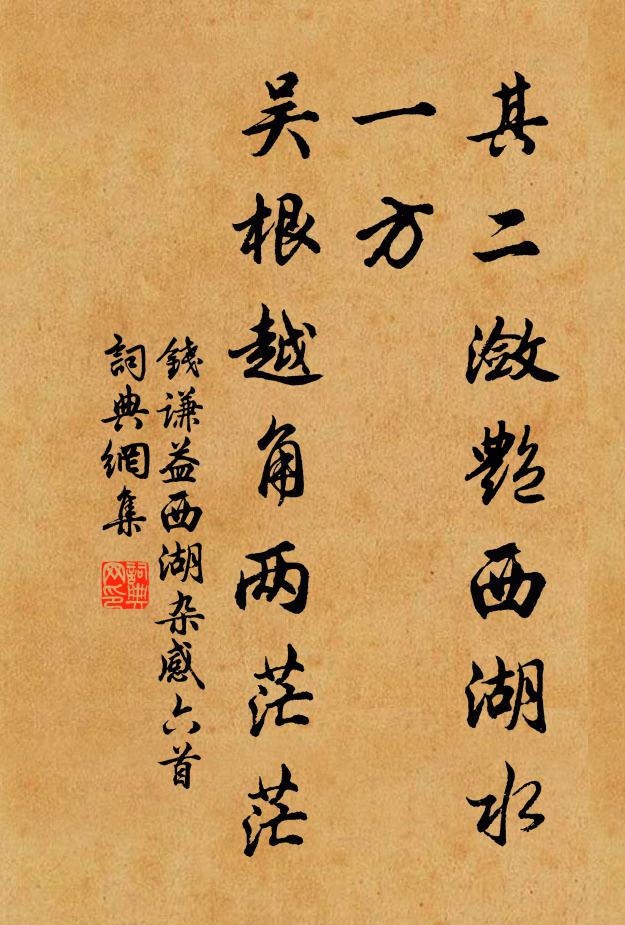 其二潋艷西湖水
一方
吴根越角两茫茫
錢谦益西湖杂感六首
詞典網集
詞典网印